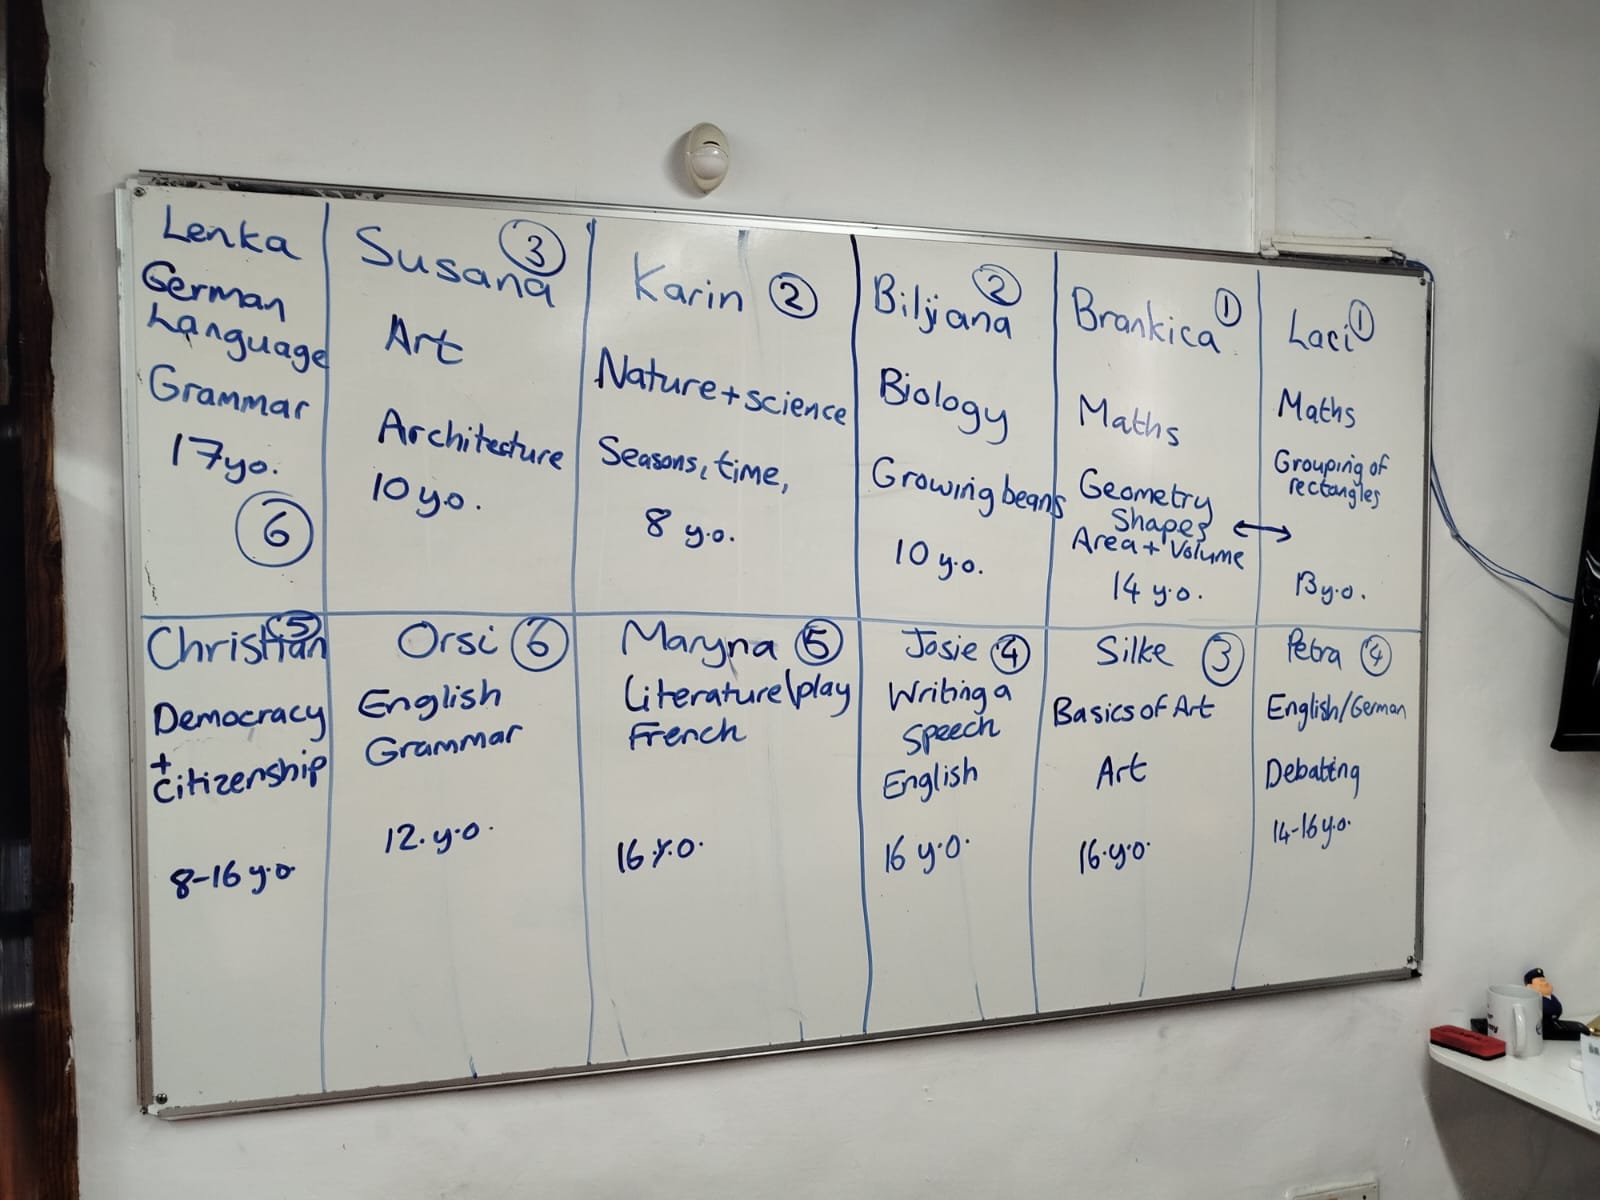 Lenka
German
Language
Grammar
17yo.
6
Susana 3
Art
Architecture
10 yo.
Karin 2
Nature + science
Seasons, time,
8 y.o.
Biljiana 2
Biology
Growing beans
10 y.o.
Brankica 1
Maths
Geometry
Shapes ↔
Area + Volume
14 y.o.
Laci 1
Maths
Grouping of
rectangles
13y.o.
Christian 5
Democracy
+
Citizenship
8-16 y.o
Orsi 6
English
Grammar
12. y.o.
Maryna 5
Literature\play
French
16 y.o.
Josie 4
Writing a
Speech
English
16 y.o.
Silke 3
Basics of Art
Art
16.y.o.
Petra 4
English/German
Debating
14-16 y.o.